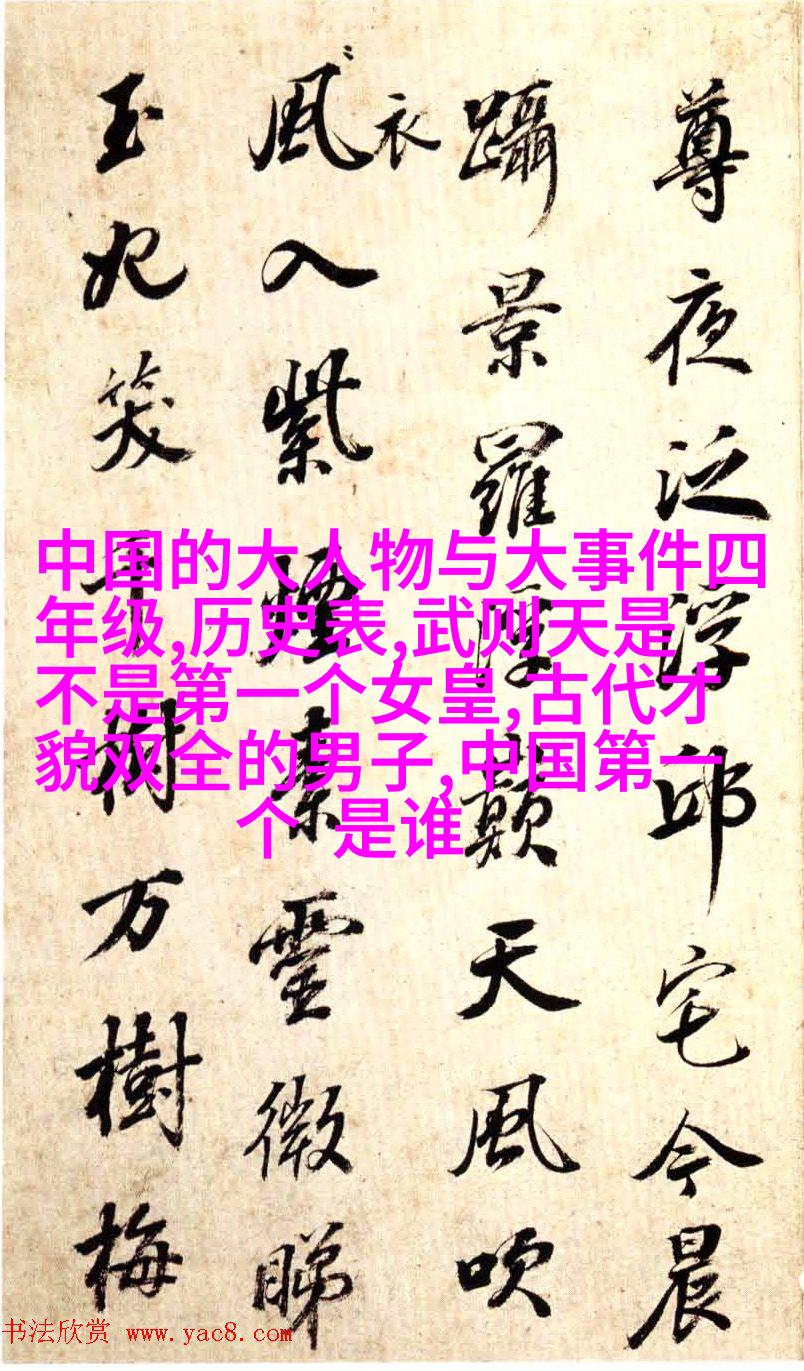 尊夜泛浮邱宅今晨
躡景羅浮巔天風吹
衣
風入紫煙素靈微睇
玉妃笑千樹万樹梅
中国的大人物与大事件四
年级,历史表,武则天是
不是第一个女皇,古代才
貌双全的男子,中国第一
个 是谁
书法欣赏 www.yac8.com